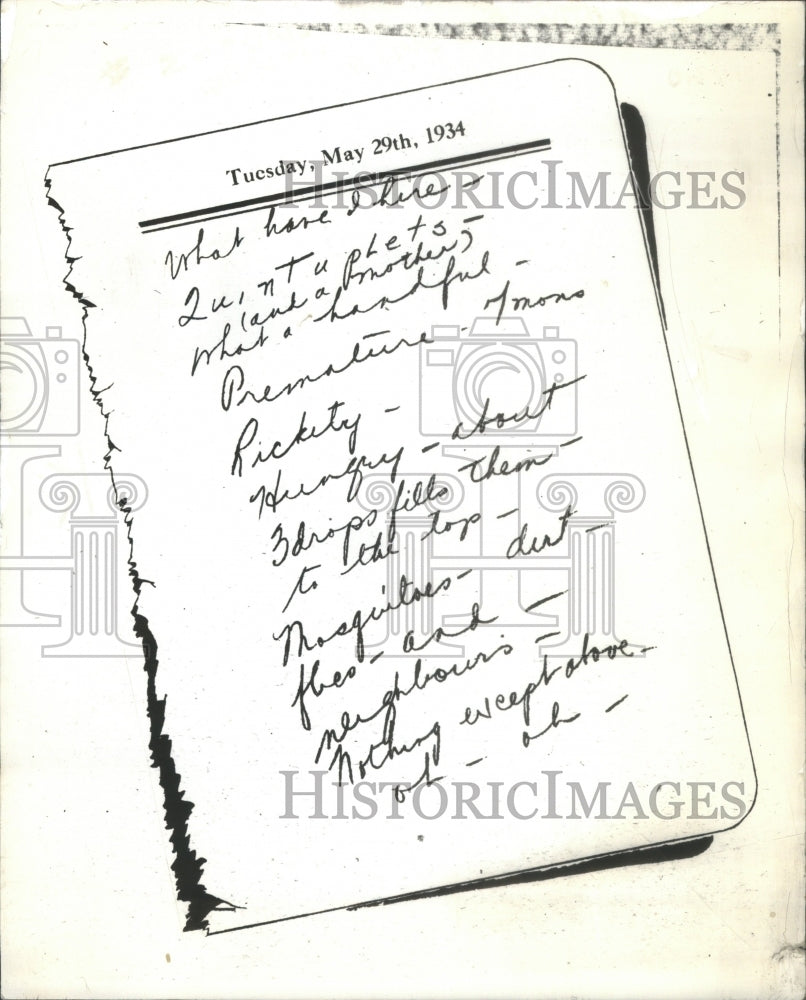 Tuesday, May 29th, 1934
What have I here -
Quintuplets -
(and a mother)
What a handful -
Premature - 7 mons
Rickety -
Hungry - about
3 drops fills them -
to the top -
Mosquitoes - dirt -
flies - and -
neighbours -
Nothing except above -
oh - oh -
HISTORICIMAGES
HISTORICIMAGES